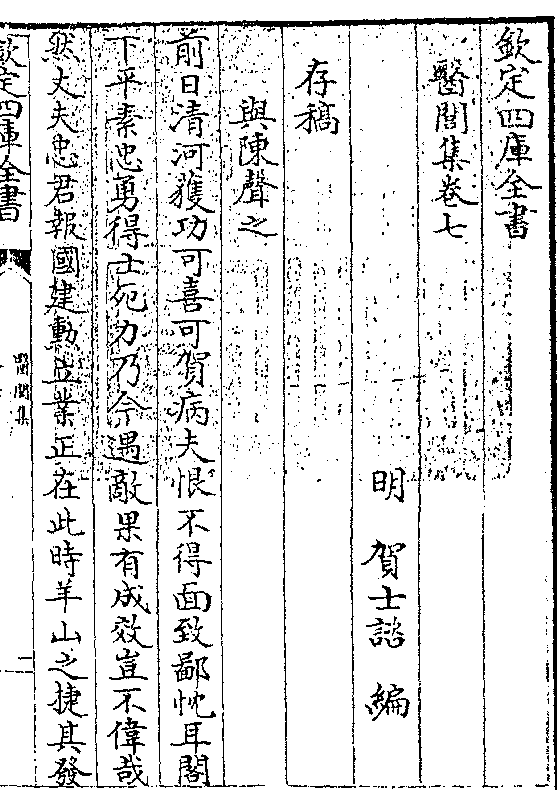 欽定四庫全書
醫閭集卷七
明　賀士諮　編
存稿
與陳聲之
前日清河獲功可喜可賀病夫恨不得面致鄙忱耳閣
下平素忠勇得士死力乃今遇敵果有成效豈不偉哉
然丈夫忠君報國建勳立業正在此時羊山之捷其發
欽定四庫全書
醫閭集